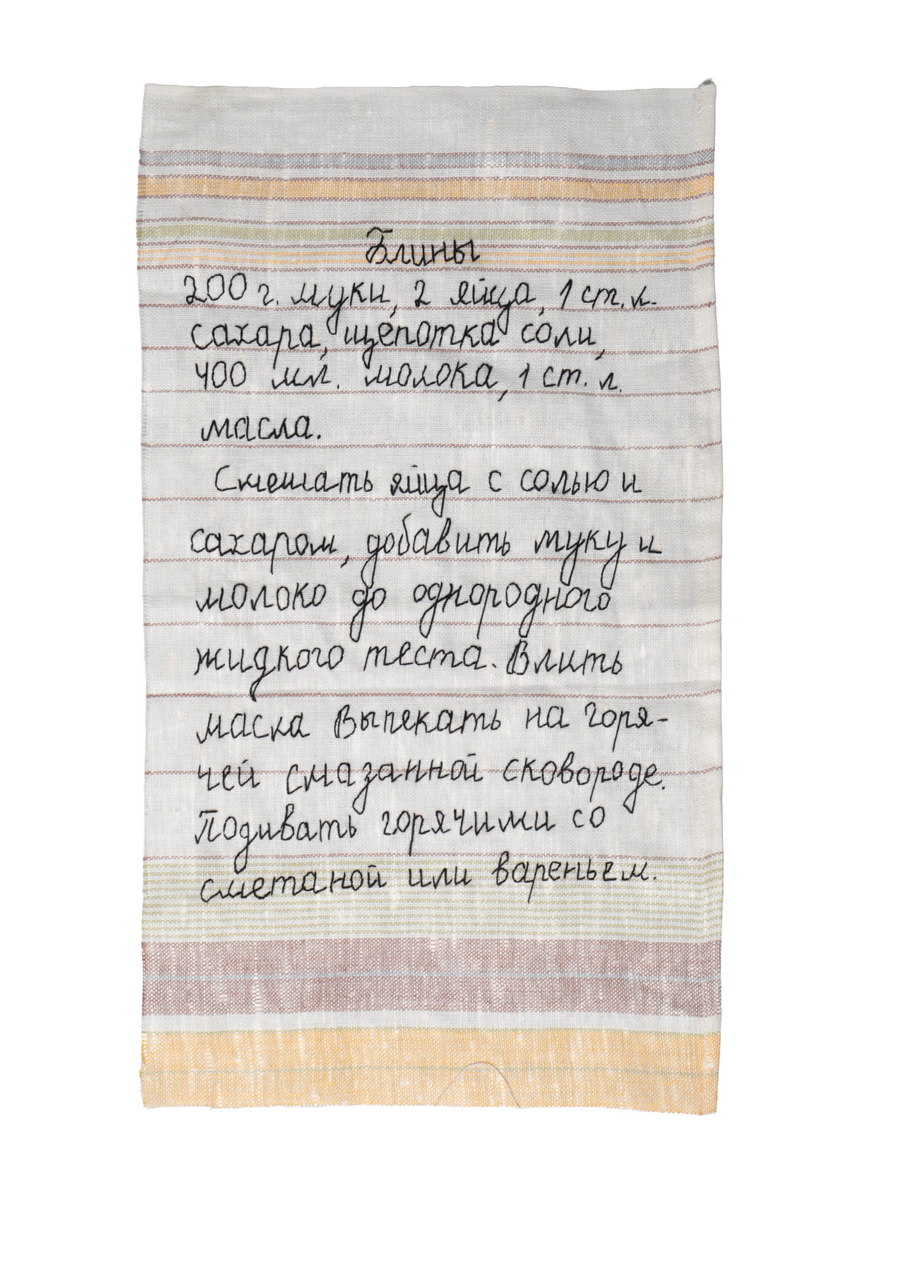 Блины
200 г. муки, 2 яйца, 1 ст. л.
сахара, щепотка соли,
400 мл. молока, 1 ст. л.
масла.
Смешать яйца с солью и
сахаром, добавить муку и
молоко до однородного
жидкого теста. Влить
масла Выпекать на горя-
чей смазанной сковороде.
Подивать горячими со
сметаной или вареньем.